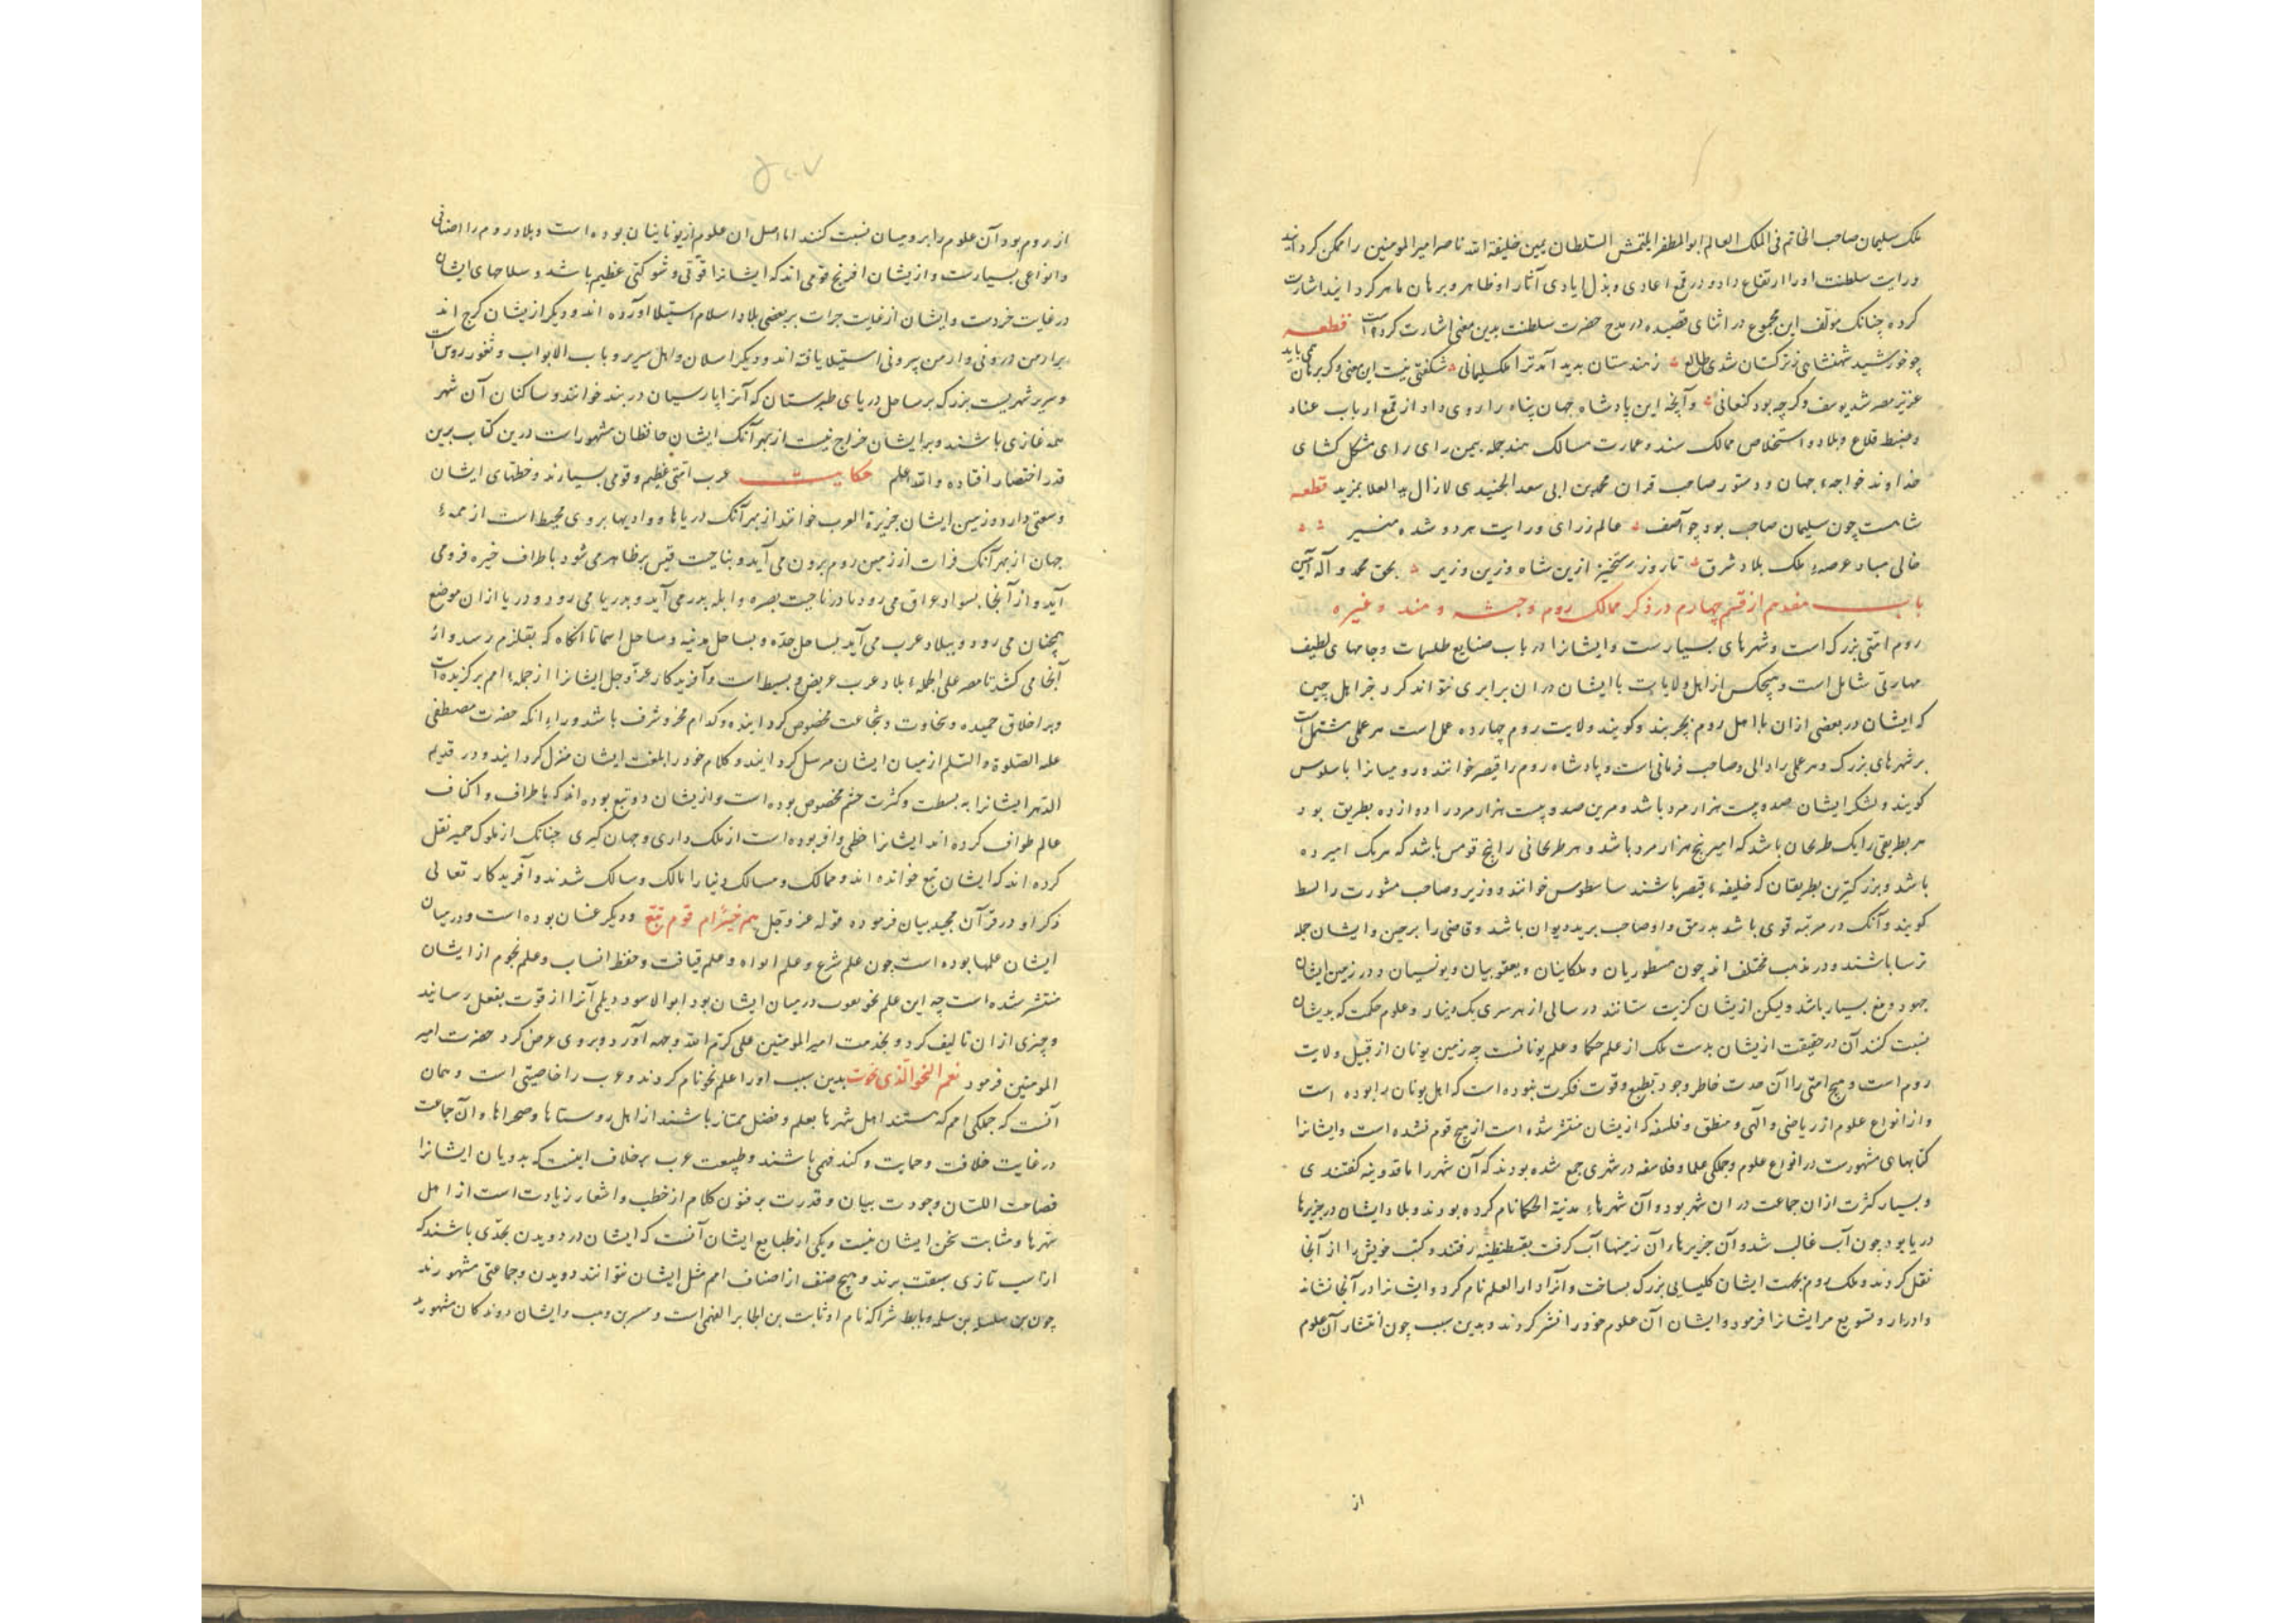 ملک سلیمان صاحب الخاتم فی الملک العالم ابوالمظفر ایلتمش السلطان یمین خلیفة الله ناصر امیرالمومنین را ممکن کردانید
و رایت سلطنت او را ارتفاع داد و در قمع اعادی و بذل ایادی آثار او ظاهر و برهان ماهر کردانید اشارت
کرده چنانک مؤلف این مجموع در اثنای قصیده در مدح حضرت سلطنت بدین معنی اشارت کرده است قطعه
چو خورشید شهنشاهی ز ترکستان شدی طالع ز هندستان بدید آمد ترا ملک سلیمانی شکفتی نیست این معنی وکر برهان همی باید
عزیز مصر شد یوسف وکرچه بود کنعانی و آنچه این پادشاه جهان پناه را روی داد از قمع ارباب عناد
و ضبط قلاع و بلاد و استخلاص ممالک سند و عمارت مسالک هند جمله بیمن رای رای مشکل کشای
خداوند خواجهٔ جهان و دستور صاحب قران محمد بن ابی سعد الجنیدی لازال العلا بمزید قطعه
شاهست چون سلیمان صاحب بود چو آصف عالم ز رای و رایت هر دو شده منیر
خالی مباد عرصهٔ ملک بلاد شرق تا روز رستخیز ازین شاه وزین وزیر بحق محمد و آله آمین
باب هفدهم از قسم چهارم در ذکر ممالک روم و حبشه و هند و غیره
روم امتی بزرک است و شهرهای بسیارست و ایشانرا در باب صنایع طلسمات و جامهای لطیف
مهارتی شامل است و هیچکس از اهل ولایات با ایشان در ان برابری نتواند کرد جز اهل چین
که ایشان در بعضی ازان با اهل روم بچربند و کویند ولایت روم چهارده عمل است هر عملی مشتمل است
بر شهرهای بزرک و هر عملی را والی و صاحب فرمانی است و پادشاه روم را قیصر خوانند و رومیانرا باسلوس
کویند و لشکر ایشان صد و بیست هزار مرد باشد و مرین صد و بیست هزار مرد را دوازده بطریق بود
هر بطریقی را یک طرخان باشد که امیر پنج هزار مرد باشد و هر طرخانی را پنج قومس باشد که هر یک امیر ده
باشد و بزرکترین بطریقان که خلیفهٔ قیصر باشند ساطوس خوانند و وزیر و صاحب مشورت را لسط
کویند و آنک در مرتبه قوی باشد بدرمق و او صاحب برید و دیوان باشد و قاضی را برحین و ایشان جمله
ترسا باشند و در مذهب مختلف اند چون نسطوریان و ملکاینان و یعقوبیان و یونسیان و در زمین ایشان
جهود و مغ بسیار باشد و لیکن ازیشان کزیت ستانند در سالی از هر سری یک دینار و علوم حکمت که بدیشان
نسبت کنند آن در حقیقت ازیشان بدست ملک از علم حکما و علم یونانست چه زمین یونان از قبیل ولایت
روم است و هیچ امتی را آن حدت خاطر و جودت طبع و قوت فکرت نبوده است که اهل یونان را بوده است
و از انواع علوم از ریاضی و الهی و منطق و فلسفه که ازیشان منتشر شده است از هیچ قوم نشده است و ایشانرا
کتابهای مشهورست در انواع علوم و جملکی علما و فلاسفه در شهری جمع شده بودند که آن شهر را ماقدونیه کفتندی
و بسیار کثرت ازان جماعت دران شهر بود و آن شهر هاء مدینة الحکما نام کرده بودند و بلاد ایشان در جزیرها
دریا بود چون آب غالب شد و آن جزیرها و آن زمینها آب کرفت بقسطنطنیه رفتند و کتب خویش را از آنجا
نقل کردند و ملک روم بجهت ایشان کلیسایی بزرک بساخت و آنرا دارالعلم نام کرد و ایشانرا در آنجا نشاند
و ادرار و تسویغ مر ایشانرا فرمود و ایشان آن علوم خود را نشر کردند و بدین سبب چون انتشار آن علوم
از
۵۰۷
از روم بود آن علوم را برومیان نسبت کنند اما اصل ان علوم از یونانیان بوده است و بلاد روم را اصنافی
و انواعی بسیارست و ازیشان افرنج قومی اند که ایشانرا قوتی و شوکتی عظیم باشد و سلاحهای ایشان
در غایت خردست و ایشان از غایت جرات بر بعضی بلاد اسلام استیلا آورده اند و دیکر ازیشان کرج اند
بر ارمن درونی و ارمن بیرونی استیلا یافته اند و دیکر اسلان و اهل سریر و باب الابواب و ثغور روس است
و سریر شهریست بزرک بر ساحل دریای طبرستان که آنرا پارسیان دربند خوانند و ساکنان آن شهر
همه غازی باشند و بر ایشان خراج نیست از بهر آنک ایشان حافظان مشهور است درین کتاب برین
قدر اختصار افتاده والله اعلم حکایت عرب امتی عظیم و قومی بسیارند و خطهای ایشان
وسعتی دارد و زمین ایشان جزیرة العرب خوانند از بهر آنک دریاها و وادیها بروی محیط است از همهٔ
جهان از بهر آنک فرات از زمین روم برون می آید و بناحیت قیس بر ظاهر می شود باطراف خیره فرومی
آید و از آنجا بسواد عراق می رود تا در ناحیت بصره و ابله بدر می آید و بدریا می رود و دریا ازان موضع
همچنان می رود و ببلاد عرب می آید بساحل جده و بساحل مدینه و ساحل اسما تا آنکاه که بقلزم رسد و از
آنجا می کشد تا مصر علی الجمله بلاد عرب عریض و بسیط است و آفریدکار عز و جل ایشانرا از جملهٔ امم برکزیده است
و بر اخلاق حمیده و سخاوت و شجاعت مخصوص کردانیده و کدام فخر و شرف باشد وراء آنکه حضرت مصطفی
علیه الصلوة والسلم از میان ایشان مرسل کردانید و کلام خود را بلغت ایشان منزل کردانید و در قدیم
الدهر ایشانرا به بسطت و کثرت حشم مخصوص بوده است و ازیشان دو تبع بوده اند که باطراف و اکناف
عالم طواف کرده اند ایشانرا حظی وافر بوده است از ملک داری و جهان کیری چنانک از ملوک حمیر نقل
کرده اند که ایشان تبع خوانده اند و ممالک و مسالک دنیا را مالک و سالک شدند و آفریدکار تعالی
ذکر او در قرآن مجید بیان فرموده قوله عز و جل اهم خیر ام قوم تبع و دیکر غسان بوده است و در میان
ایشان علمها بوده است چون علم شرع و علم انواه و علم قیافت و حفظ انساب و علم نجوم از ایشان
منتشر شده است چه این علم نحو یعرب در میان ایشان بود ابوالاسود دیلمی آنرا از قوت بفعل رسانید
و چیزی ازان تالیف کرد و بخدمت امیرالمومنین علی کرم الله وجهه آورد و بروی عرض کرد حضرت امیر
المومنین فرمود نعم النحو الذی نحوت بدین سبب او را علم نحو نام کردند و عرب را خاصیتی است و همان
آنست که جملکی امم که هستند اهل شهرها بعلم و فضل ممتاز باشند از اهل روستاها و صحراها و آن جماعت
در غایت خلافت و حمایت و کندفهمی باشند و طبیعت عرب برخلاف اینست که بدویان ایشانرا
فصاحت اللسان و جودت بیان و قدرت بر فنون کلام از خطب و اشعار زیادت است از اهل
شهرها و مشابت سخن ایشان نیست و یکی از طبایع ایشان آنست که ایشان در دویدن بحدی باشند که
از اسب تازی سبقت برند و هیچ صنف از اصناف امم مثل ایشان نتوانند دویدن و جماعتی مشهورند
چون بن سلسل بن سلمه و تابط شرا که نام او ثابت بن الجابر الفهمی است و بن وهب و ایشان دوندکان مشهورند